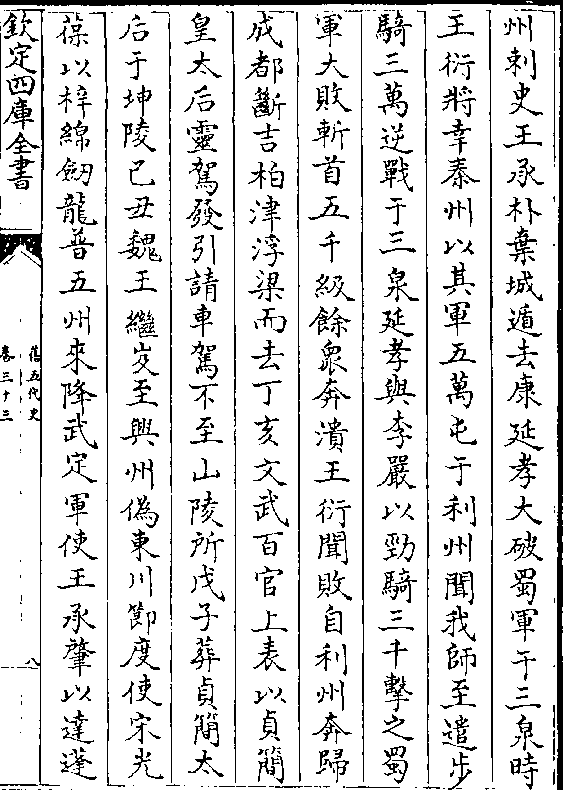 州刺史王承朴棄城遁去康延孝大破蜀軍于三泉時
王衍將幸秦州以其軍五萬屯于利州聞我師至遣步
騎三萬逆戰于三泉延孝與李嚴以勁騎三千擊之蜀
軍大敗斬首五千級餘衆奔潰王衍聞敗自利州奔歸
成都斷吉柏津浮梁而去丁亥文武百官上表以貞簡
皇太后靈駕發引請車駕不至山陵所戊子葬貞簡太
后于坤陵己丑魏王繼岌至興州偽東川節度使宋光
葆以梓綿劒龍普五州來降武定軍使王承肇以達蓬
欽定四庫全書
舊五代史
卷三十三
八